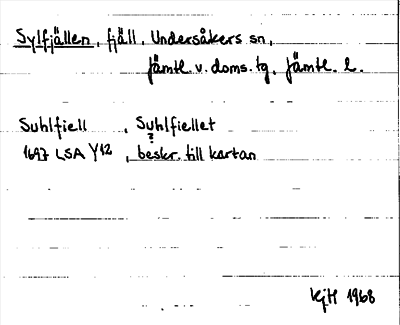 Sylfjällen, fjäll, Undersåkers sn,
Jämtl. v. doms. tg, Jämtl. l.
Suhlfiell , Syhlfiellet
?
1697 LSA Y12, beskr. till kartan
KjH 1968